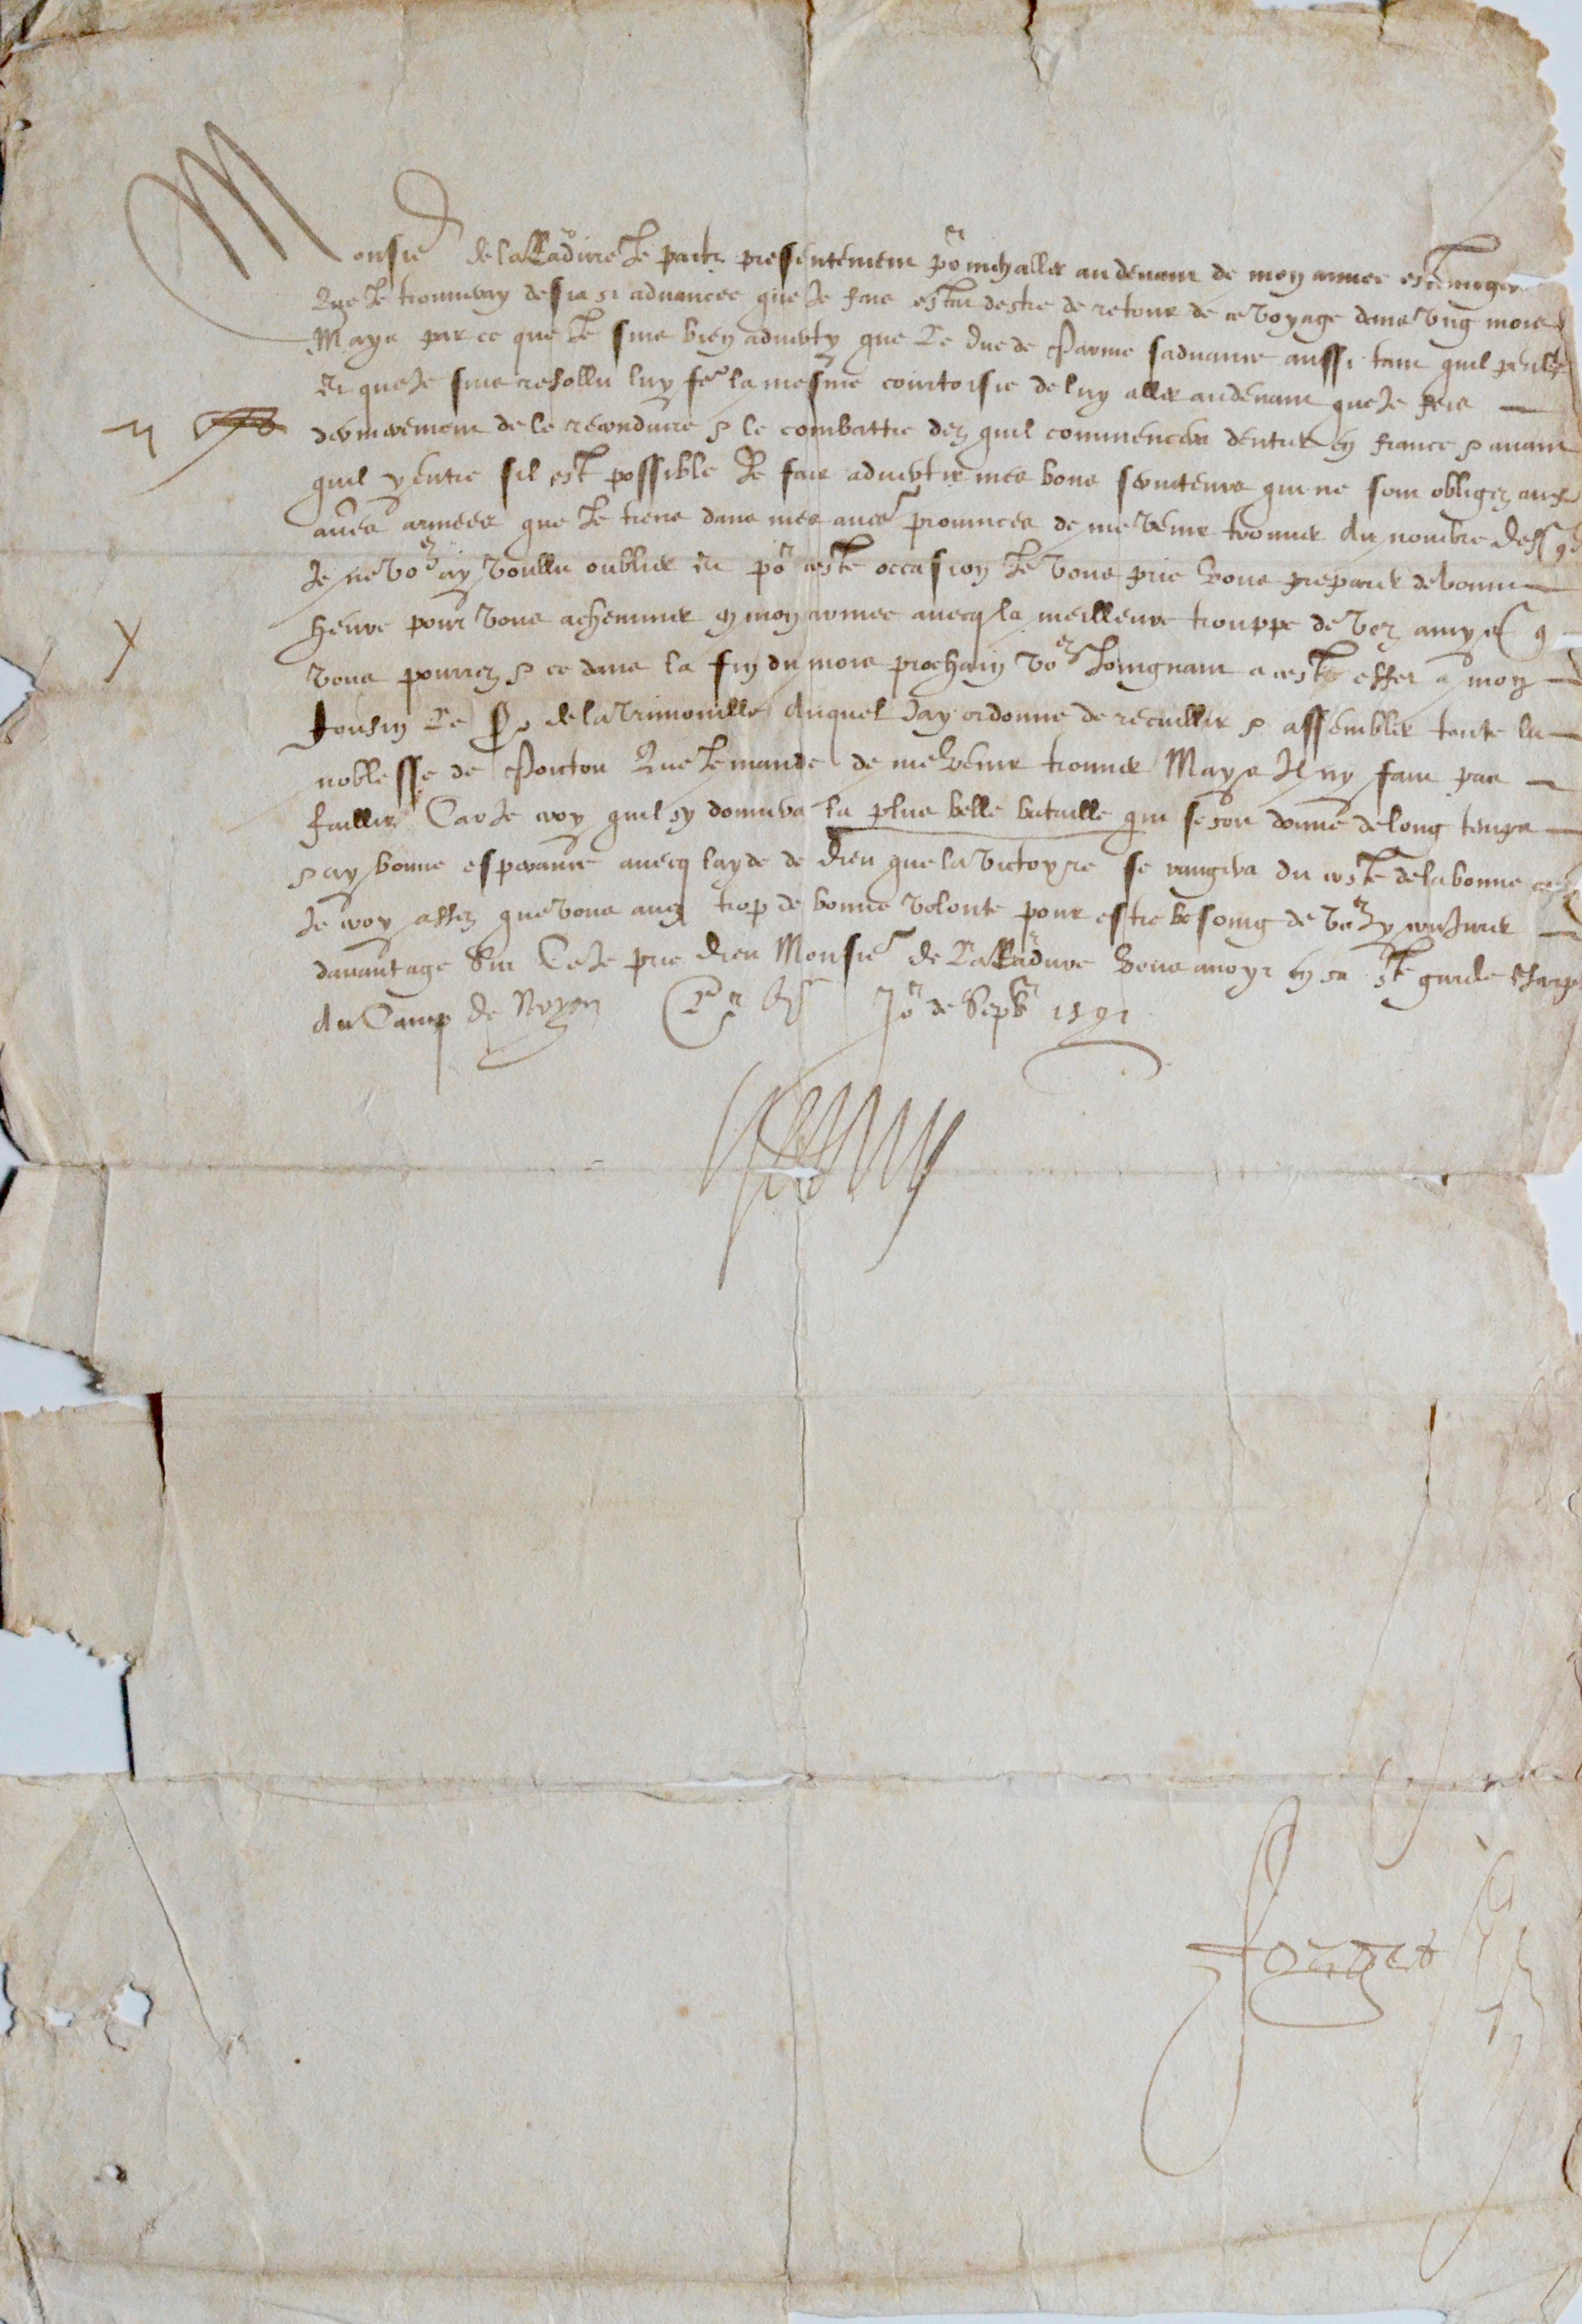 Monsieʳ de la Je partz presentement poʳ mẽ aller au devant de mon armee estrangere
Que Je trouveray desja si advancee que Je fais estat destre de retour de ce voyage dans ung mois
Mays par ce que Je suis bien adverty que Le duc de Parme sadvance aussi tant quil peult
Et que Je suis resollu luy feʳ la mesme courtoisie de luy aller au devant que Je feis
dernierement de le reconduire & le combattre dez quil commencera dentrer en france & avant
quil y entre sil est possible Je fais advertir mes bons serviteurs qui ne sont obligez aux
aũes armees que Je tiens dans mes aũes provinces de me venir trouver du nombre desqˡˢ
Je ne voˢ ay voullu oublier Et poʳ ceste occasion Je vous prie Vous preparer de bonne
heure pour vous acheminer en mon armee avecq la meilleure trouppe de voz amys q
vous pourrez & ce dans la fin du mois prochain voˢ Joingnant a cest effet a mon
Cousin Le Sʳ de la Trimouille Auquel Jay ordonne de recuillir & assembler toute la
noblesse de Poictou Que Je mande de me venir trouver Mays Il ny fault pas
faillir Car Je croy quil sy donnera la plus belle bataille qui se soit donnee de long temps
& ay bonne esperance avecq layde de Dieu que la victoyre se rangera du coste de la bonne cause
Je croy assez que vous avez trop de bonne volonte pour estre besoing de voˢ y conjurer
davantage Sur Ce Je prie Dieu Monsieʳ de Vous avoyr en sa sᵗᵉ garde
du Camp de Noyon Ce Joʳ de Sepᵇʳᵉ 1591
Henry
Forget